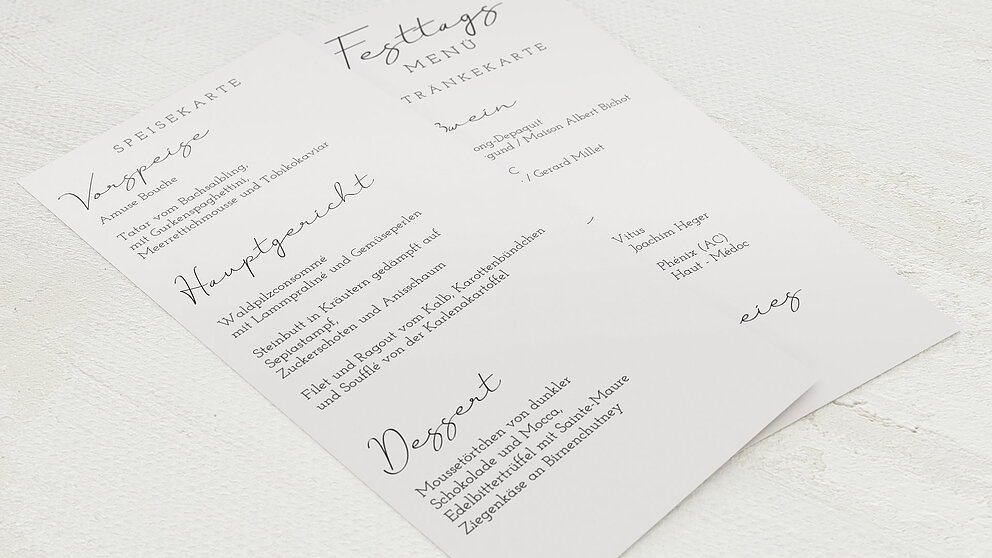 SPEISEKARTE
Vorspeise
Amuse Bouche
Tatar vom Bachsaibling,
mit Gurkenspaghettini,
Meerrettichmousse und Tobikokaviar
Hauptgericht
Waldpilzconsommé
mit Lammpraliné und Gemüseperlen
Steinbutt in Kräutern gedämpft auf
Sepiastampf,
Zuckerschoten und Anisschaum
Filet und Ragout vom Kalb, Karottenbündchen
und Soufflé von der Karlenakartoffel
Dessert
Moussetörtchen von dunkler
Schokolade und Mocca,
Edelbittertrüffel mit Sainte-Maure
Ziegenkäse an Birnenchutney
Festtags
MENÜ
TRÄNKEKARTE
wein
ong-Depaquit
gund / Maison Albert Bichot
/ Gerard Millet
Vitus
Joachim Heger
Phénix (AC)
Haut - Médoc